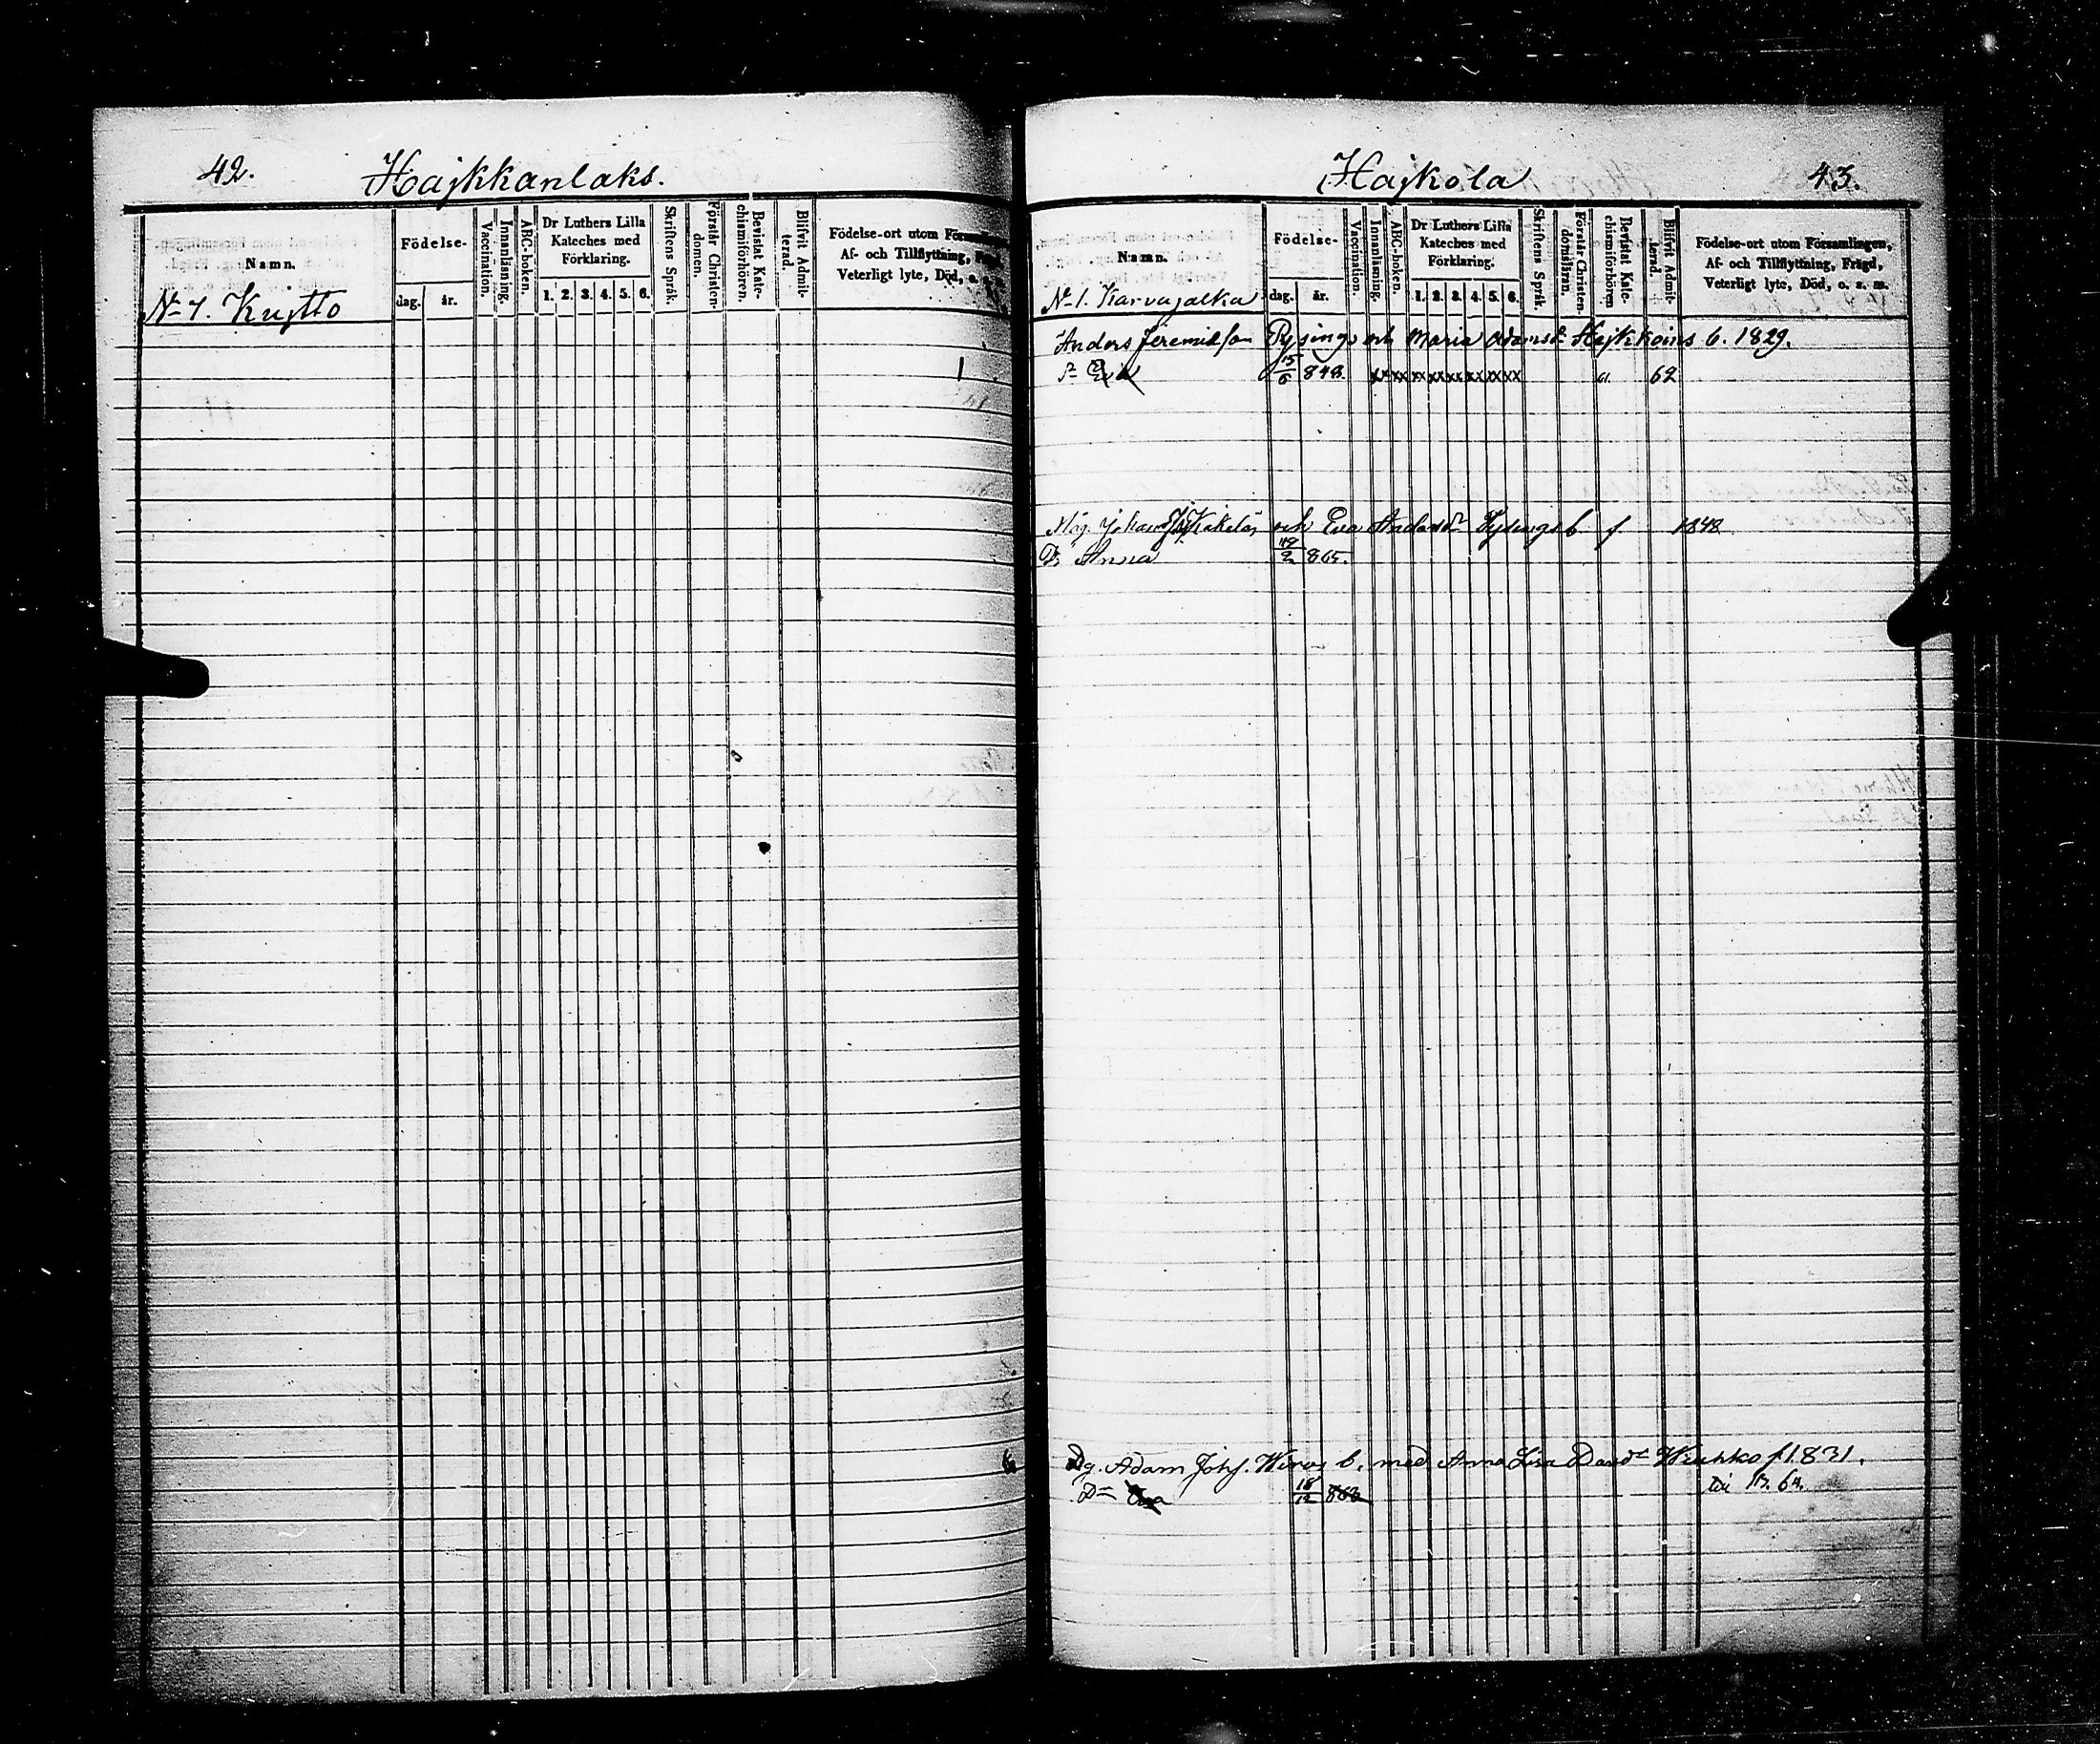 42. Hajkkanlaks.
Namn.
Födelse-
dag. år.
Vaccination.
Innanläsning.
ABC-boken.
Dr Luthers Lilla Kateches med Förklaring.
1. 2. 3. 4. 5. 6.
Skriftens Språk.
Förstår Christen-domen.
Bevistat Kate-chismiförhören.
Blifvit Admit-terad.
Födelse-ort utom
Af- och Tillflyttning,
Veterligt lyte, Död,
No 7. Kujtto
Hajkola 43.
Namn.
Födelse-
dag. år.
Vaccination.
Innanläsning.
ABC-boken.
Dr Luthers Lilla Kateches med Förklaring.
1. 2. 3. 4. 5. 6.
Skriftens Språk.
Förstår Christen-domsläran.
Bevistat Kate-chismiförhören
Blifvit Admit-terad.
Födelse-ort utom Församlingen,
Af- och Tillflyttning, Frägd,
Veterligt lyte, Död, o. s. m.
No 1. Karvajalka
Anders Jeremiasson och Maria Adamsdr b. 1829.
15/6 848. xx xx xx xx xx xx xx xx 62
Måg. Johan och Eva Andersdr f 1842
Dr Anna 865.
Dg. Adam Johs. b. med Anna Lisa Davdr f 1831.
Dr 18/12 863 64.